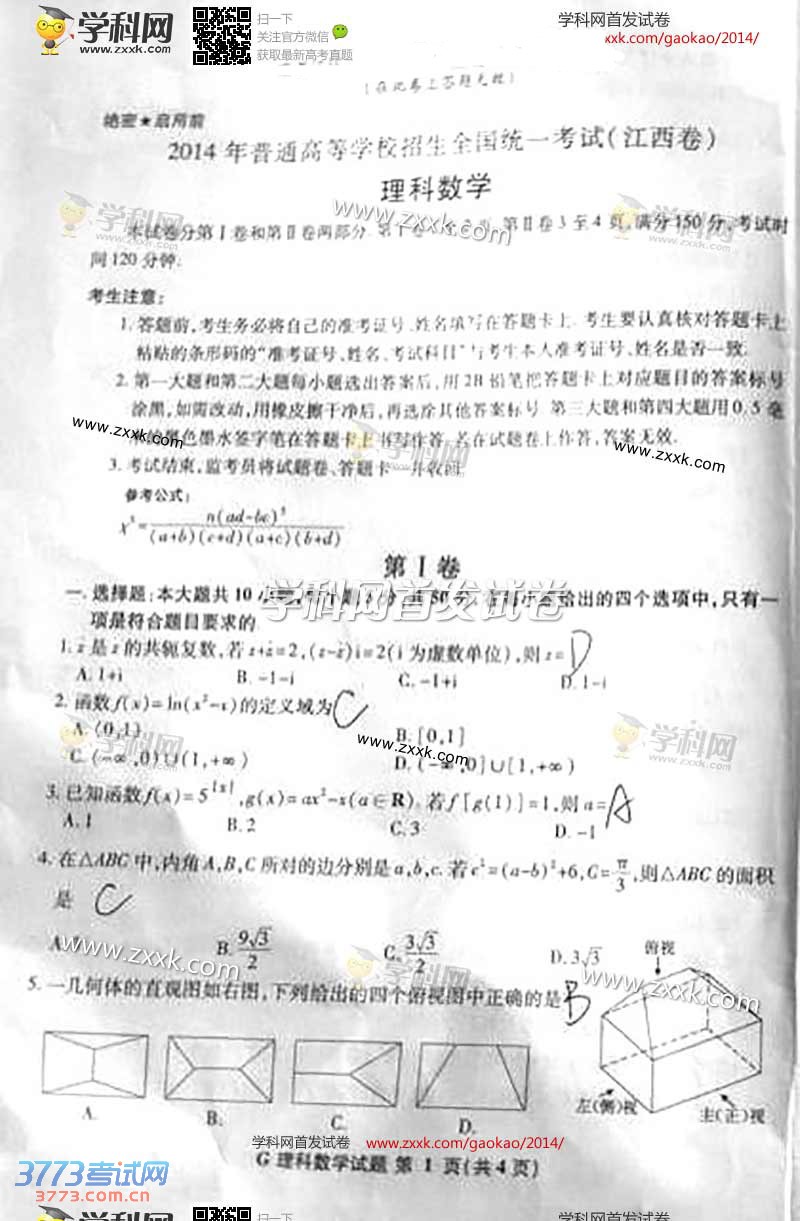 学科网
www.zxxk.com
扫一下
关注官方微信
获取最新高考真题
学科网首发试卷
xxk.com/gaokao/2014/
(在此卷上答题无效)
绝密★启用前
2014年普通高等学校招生全国统一考试(江西卷)
理科数学
学科网
www.zxxk.com
www.zxxk.com
学科网
www.zxxk.com
本试卷分第Ⅰ卷和第Ⅱ卷两部分.第Ⅰ卷 第Ⅱ卷3至4页,满分150分,考试时
间120分钟.
考生注意:
1.答题前,考生务必将自己的准考证号、姓名填写在答题卡上.考生要认真核对答题卡上
粘贴的条形码的“准考证号、姓名、考试科目”与考生本人准考证号、姓名是否一致.
2.第一大题和第二大题每小题选出答案后,用2B铅笔把答题卡上对应题目的答案标号
涂黑,如需改动,用橡皮擦干净后,再选涂其他答案标号.第三大题和第四大题用0.5毫
www.zxxk.com
的黑色墨水签字笔在答题卡上书写作答.若在试题卷上作答,答案无效.
www.zxxk.com
学科网
www.zxxk.com
3.考试结束,监考员将试题卷、答题卡一并收回.
参考公式:
x²=n(ad-bc)²/(a+b)(c+d)(a+c)(b+d)
第Ⅰ卷
学科网首发试卷
一.选择题:本大题共10小 给出的四个选项中,只有一
项是符合题目要求的.
1.z̄是z的共轭复数,若z+z̄=2,(z-z̄)i=2(i为虚数单位),则z= D
A.1+i B.-1-i C.-1+i D.1-i
2.函数f(x)=ln(x²-x)的定义域为 C
A.(0,1) B.[0,1]
学科网
www.zxxk.com
www.zxxk.com
学科网
www.zxxk.com
C.(-∞,0)∪(1,+∞) D.(-∞,0]∪[1,+∞)
3.已知函数f(x)=5^|x|,g(x)=ax²-x(a∈R).若f[g(1)]=1,则a= A
A.1 B.2 C.3 D.-1
4.在△ABC中,内角A,B,C所对的边分别是a,b,c.若c²=(a-b)²+6,C=π/3,则△ABC的面积
是 C
A. B.9√3/2 C.3√3/2 D.3√3
www.zxxk.com
学科网
www.zxxk.com
www.zxxk.com
俯视
5.一几何体的直观图如右图,下列给出的四个俯视图中正确的是 B
A. B. C. D.
左(侧)视 主(正)视
学科网首发试卷 www.zxxk.com/gaokao/2014/
G 理科数学试题 第1页(共4页)
3773考试网
3773.com.cn
学科网
扫一下
学科网首发试卷